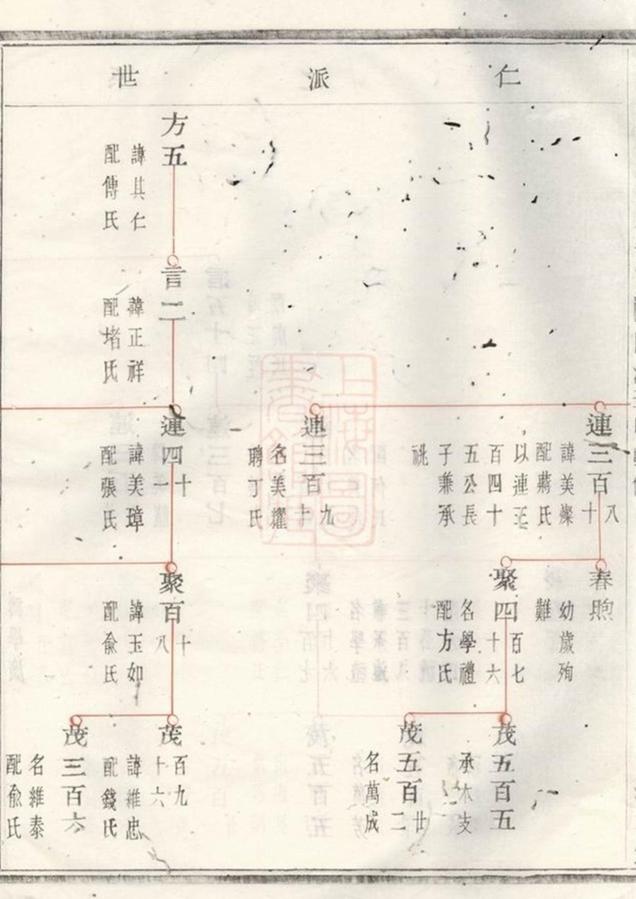 仁派世
方五
諱其仁
配傅氏
言二
諱正祥
配堵氏
連三百八十
諱美
配蔣氏
以連三
百四十
五公長
子兼承
祧
連三百九十
名美燿
聘丁氏
連四十
諱美璋
配張氏
春煦
幼歲殉
難
聚四百七
十六
名學禮
配方氏
聚百十八
諱玉如
配俞氏
茂五百五
承木支
茂五百廿二
名萬成
茂百九
十六
諱維忠
配錢氏
茂三百六
名維泰
配俞氏